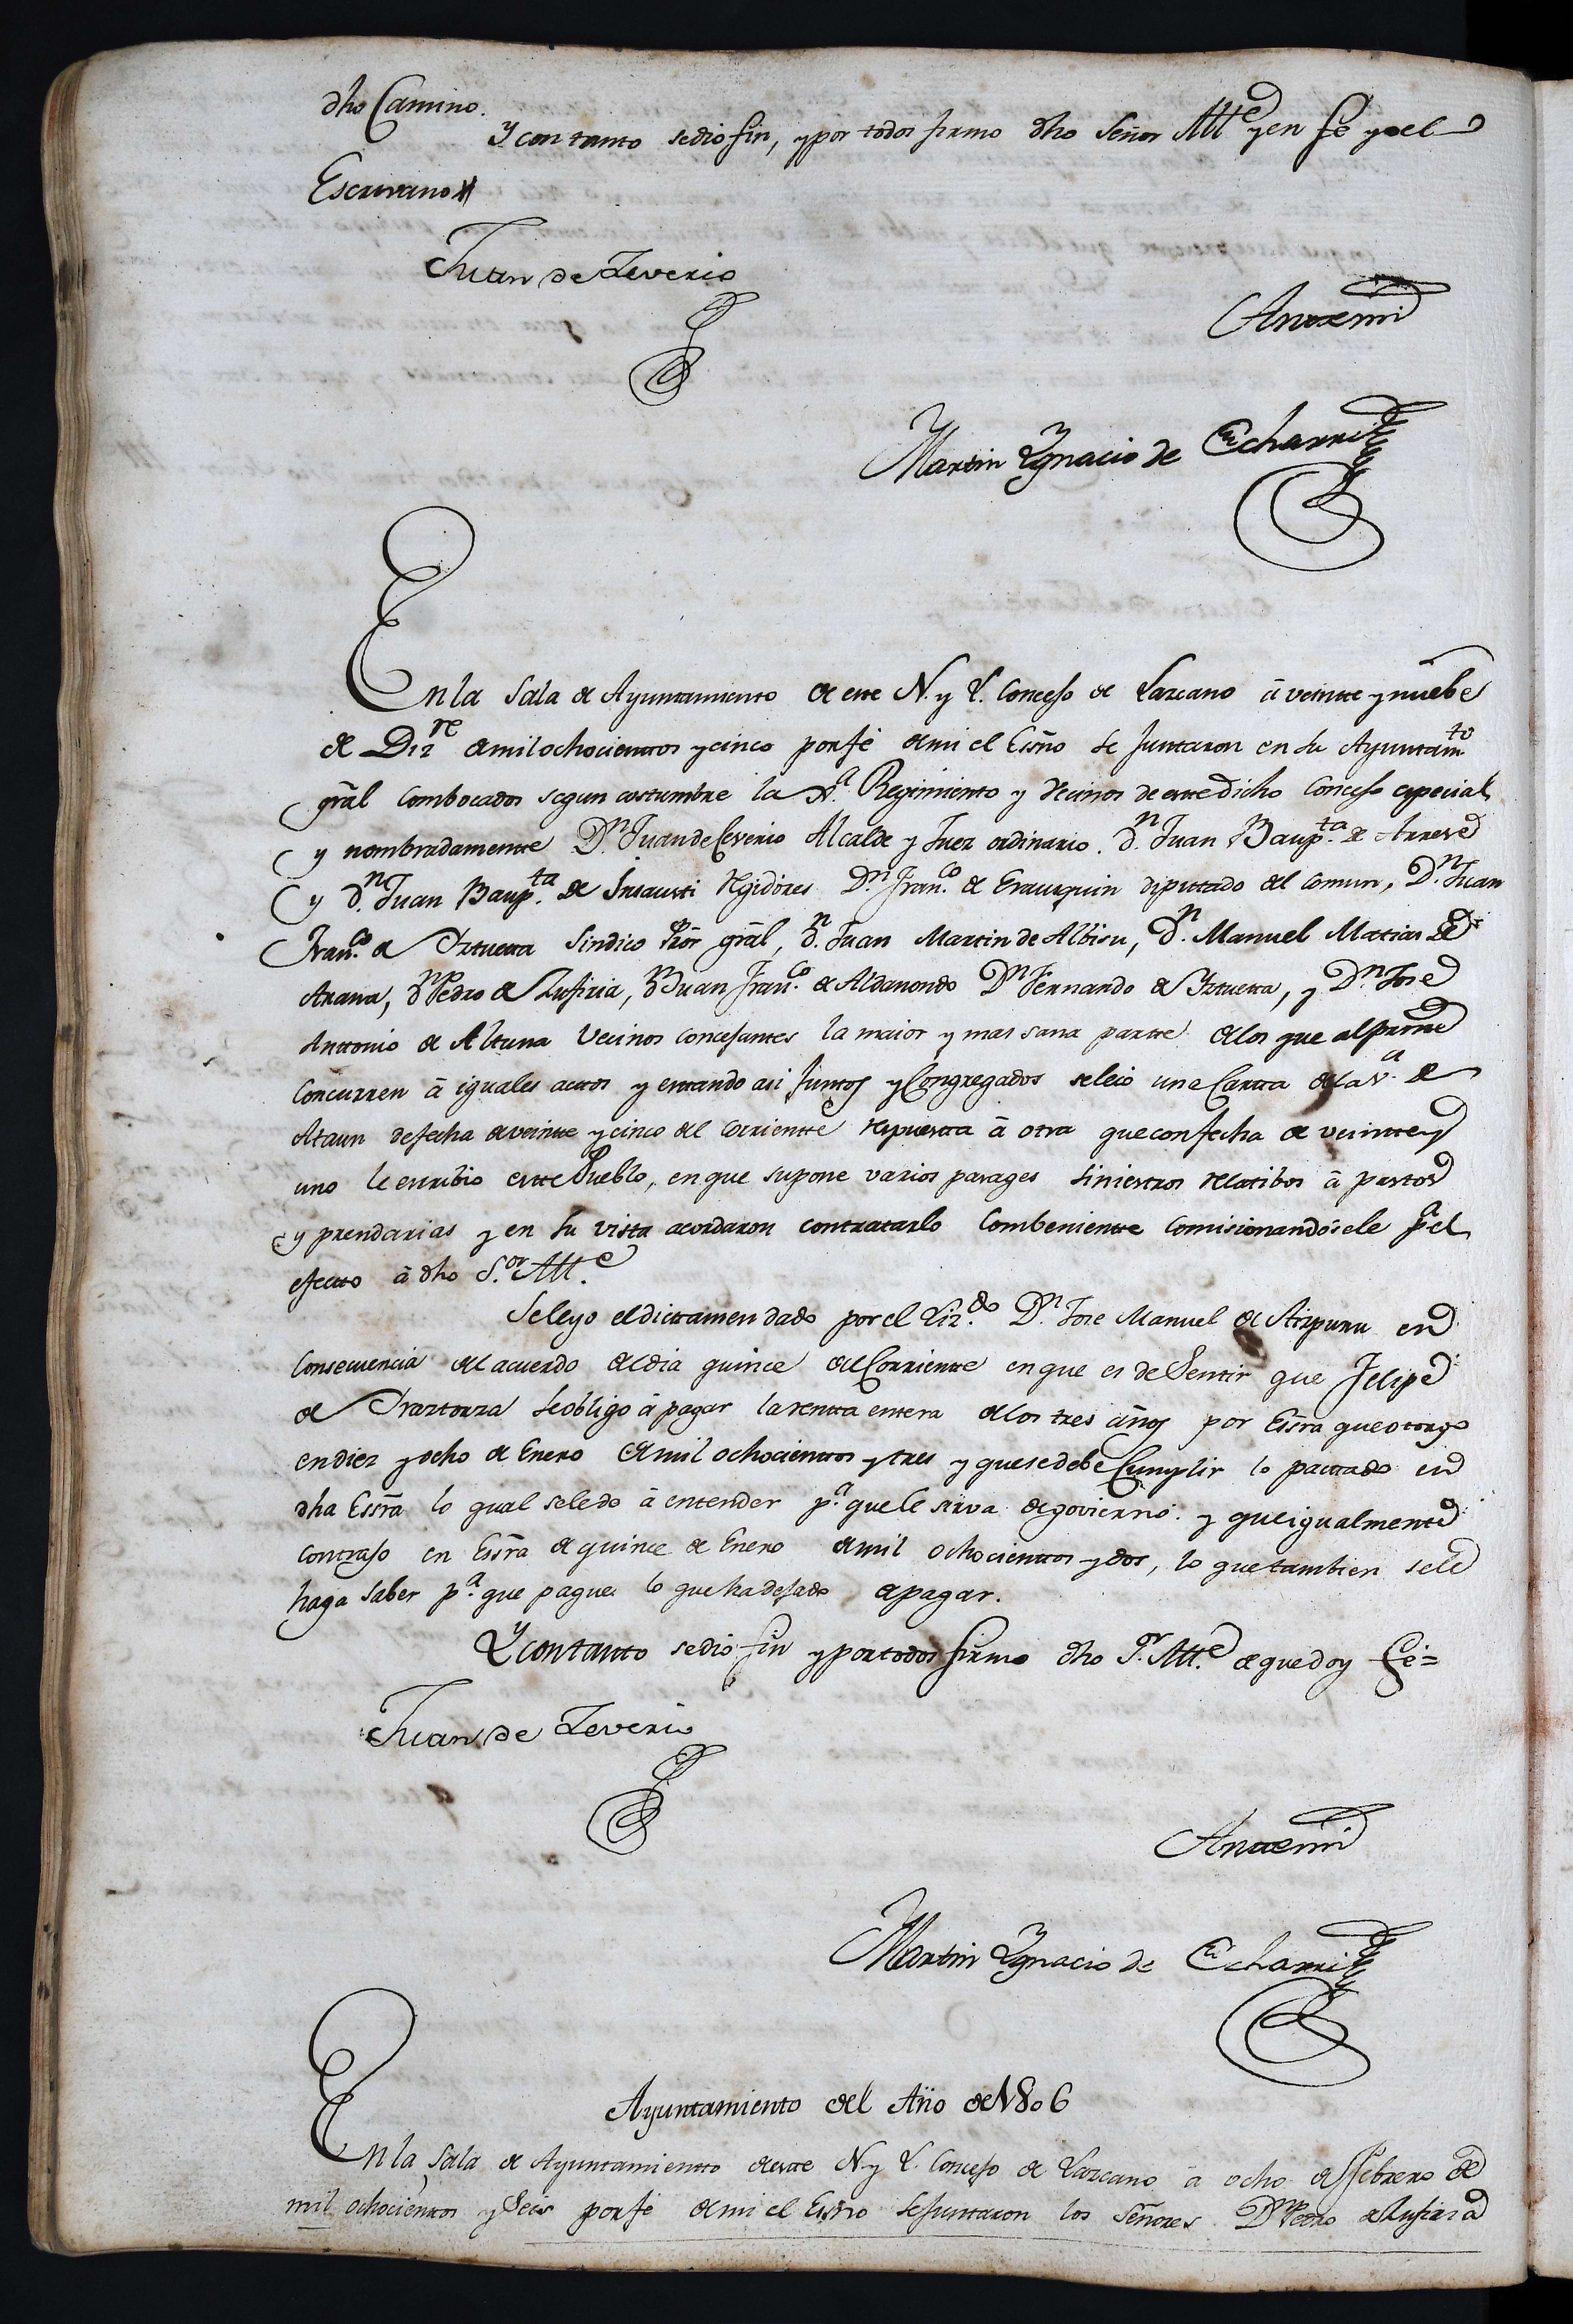 dho Camino.
Y con tanto se dio fin, y por todos firmo dho Señor Alle y en fe yo el
Escrivano
Juan de Zeverio
Antemi
Martin Ygnacio de Echarri
En la Sala de Ayuntamiento de este N. y L. Concejo de Lazcano à veintte y nuebe
de Dizre de mil ochocientos y cinco por fé de mi el Essño se juntaron en su Ayuntamto
gral combocados segun costumbre la Regimiento y Vecinos de este dicho Concejo especial
y nombradamentte Dn. Juan de Ceverio Alcalde y Juez ordinario. dn. Juan Baupta. de Arrese
y dn. Juan Baupta. de Insausti Regidores Dn. Franco. de Erausquin diputtado del Comun, Dn. Juan
Franco. de Yztuetta Sindico Pror gral, dn. Juan Martin de Albisu, dn. Manuel Matias de
Arana, dn Pedro de Lusiria, dn Juan Franco. de Aldanondo Dn Fernando de Yztuetta, y Dn. Jose
Anttonio de Altuna Vecinos Concejantes la maior y mas sana partte de los que al prnte
Concurren à iguales acttos y esttando asi Juntos y Congregados se leió una Cartta de la Va. de
Ataun de fecha de veintte y cinco del Corrientte respuestta à otra que con fecha de veintte y
uno le escribio estte Pueblo, en que supone varios parages siniestros relatibos à pastos
y prendarias y en su vista acordaron contratarlo Combenientte Comisionandosele pa el
efectto à dho Sor. Alle.
Se leyo el dicttamen dado por el Lizdo. Dn. Jose Manuel de Aizpuru en
Consecuencia del acuerdo del dia quince del Corrientte en que es de Sentir que Felipe
de Yraztorza se obligo à pagar la rentta entera de los tres años por Essra que otorgo
en diez y ocho de Enero de mil ochocienttos y tres y que se debe Cumplir lo pacttado en
dha Essra lo qual se le de à entender pa. que le sirva de govierno. y que igualmente
Contrajo en Essra de quince de Enero de mil ochocienttos y dos, lo que tambien se le
haga saber pa. que pague lo que ha dejado de pagar.
Y con tantto se dio fin y por todos firmo dho Sr. Alle. de que doy Fé=
Juan de Zeverio
Antemi
Martin Ygnacio de Echarri
Ayuntamiento del Año de 1806
En la Sala de Ayuntamientto de estte N. y L. Concejo de Lazcano à ocho de Febrero de
mil ochocienttos y Seis por fé de mi el Essño se juntaron los Señores Dn Pedro de Lusiria